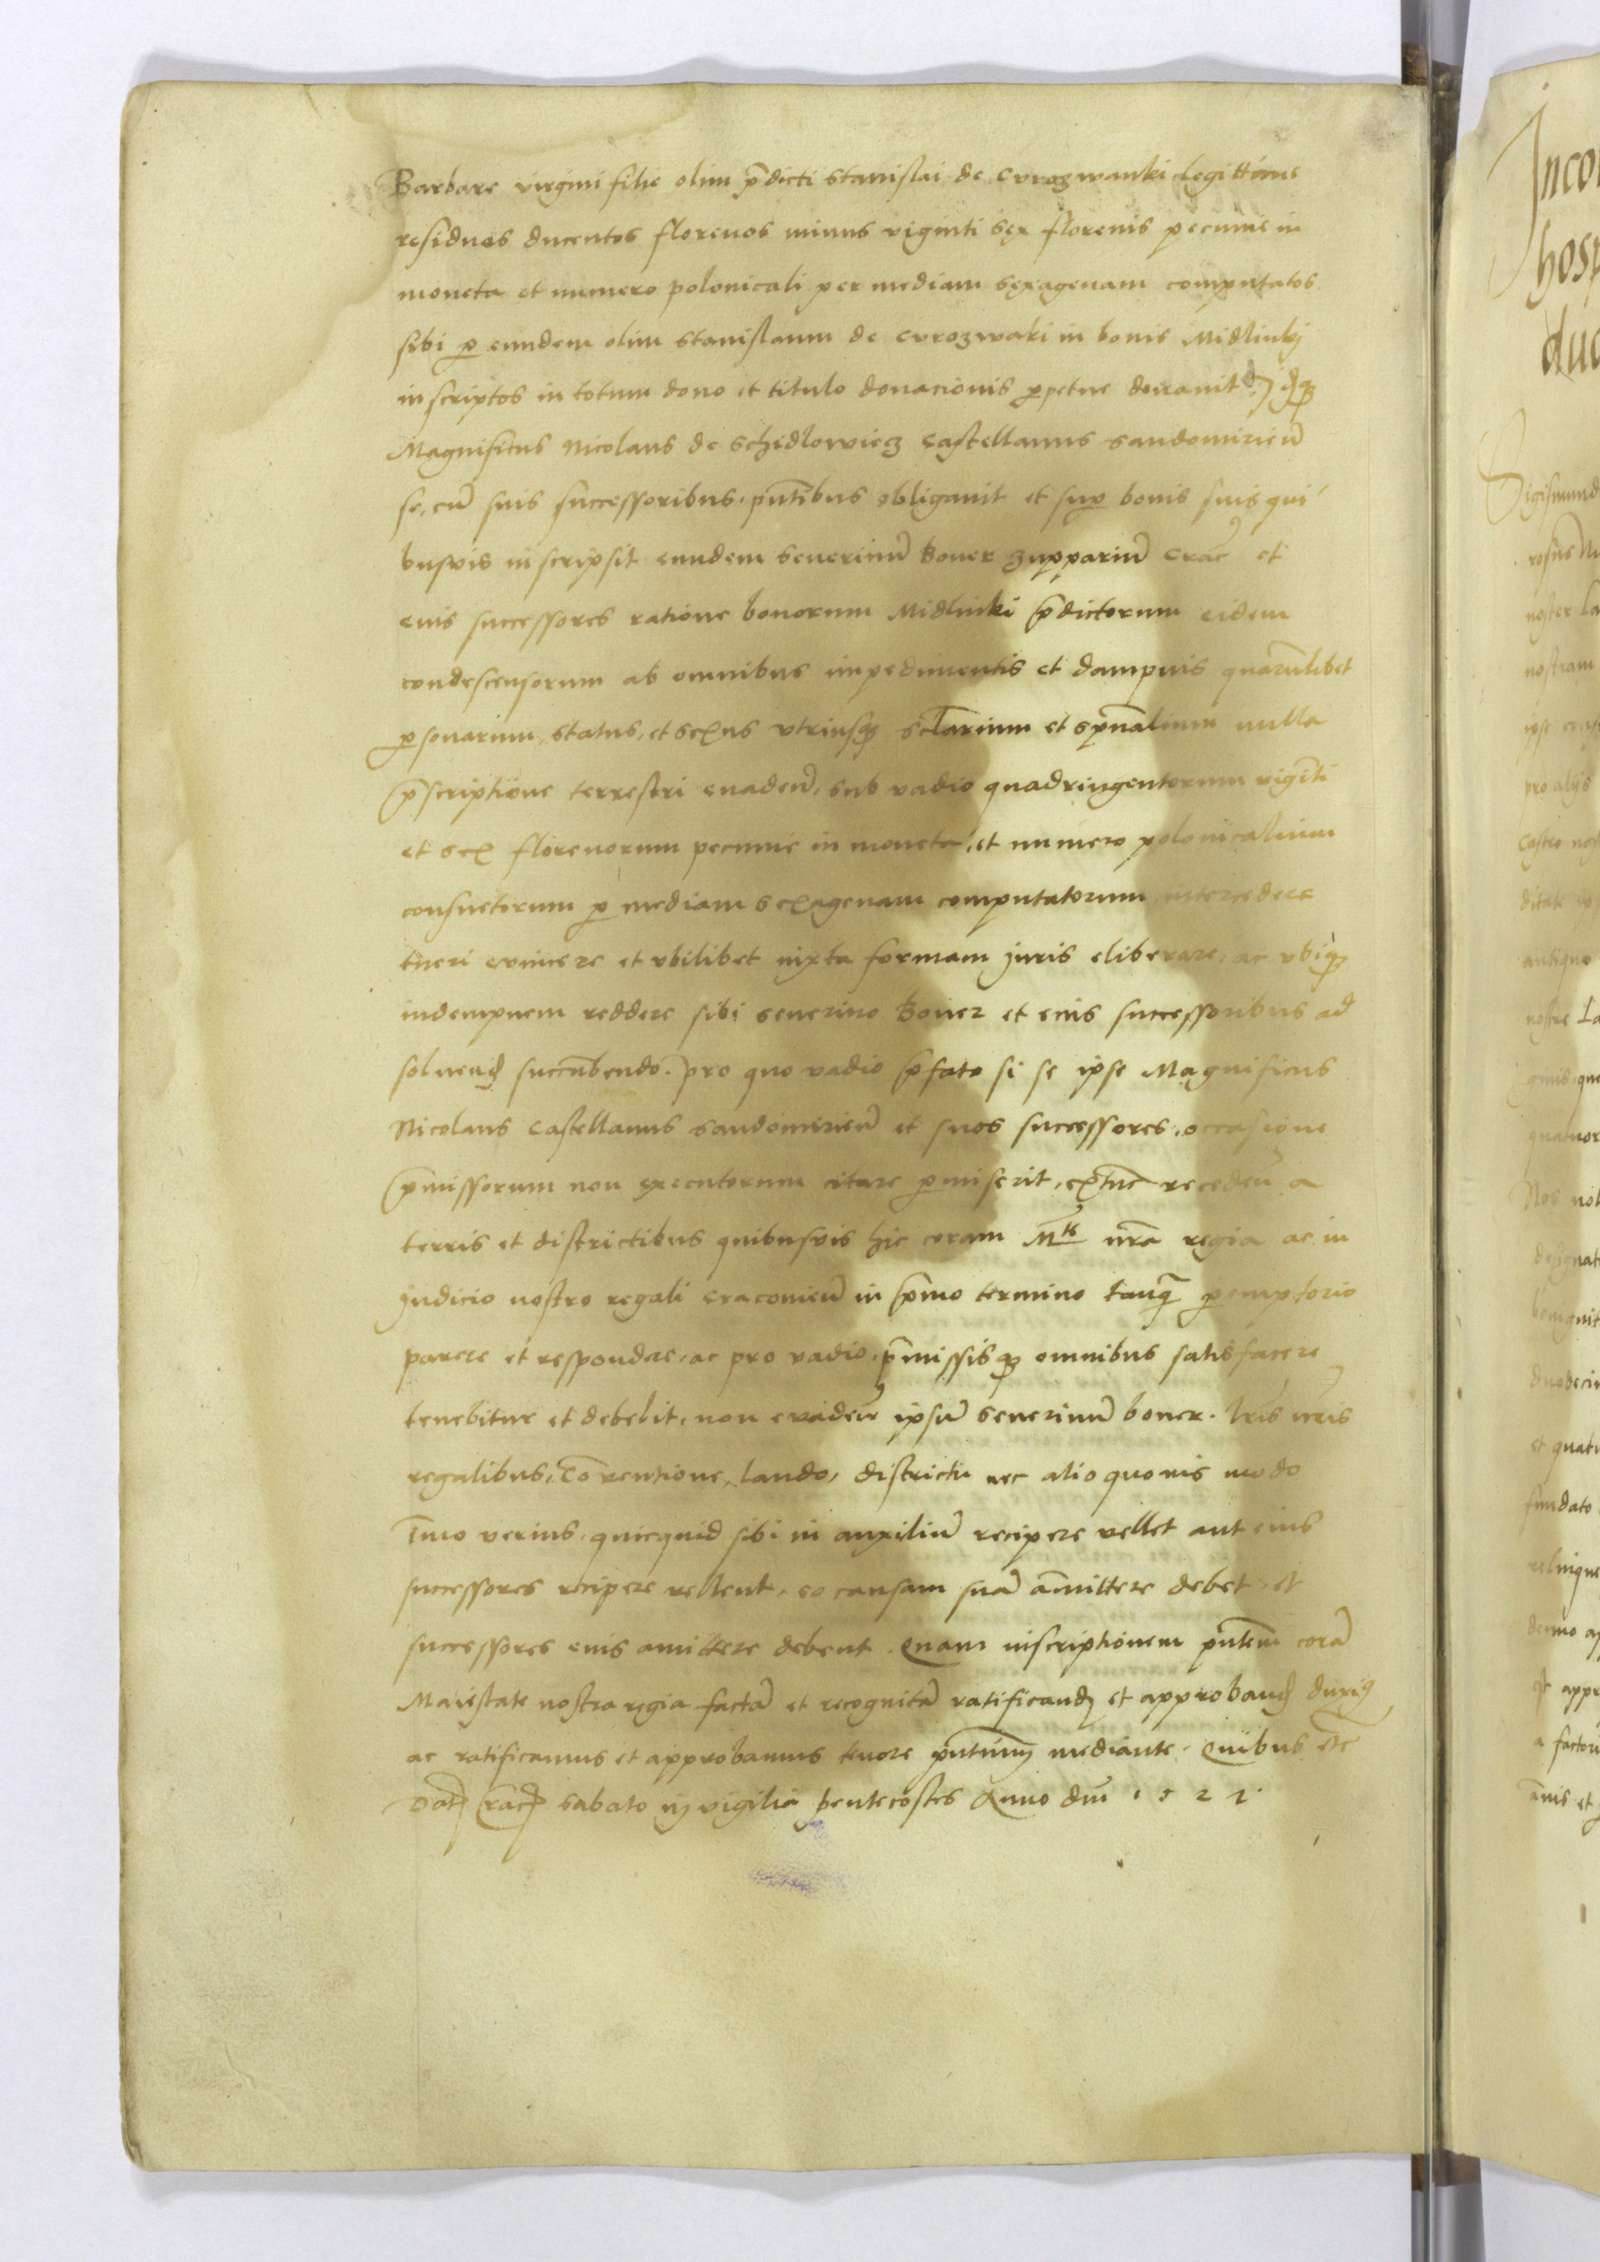 Barbare virgini filie olim p̄dicti Stanislai de Cvrozwanki legittime
residuos ducentos florenos minus viginti sex florenis pecunie in
moneta et numero polonicali per mediam sexagenam computatos
sibi ꝑ eundem olim Stanislaum de Cvrozwaki in bonis Midlinkj
inscriptos in totum dono et titulo donacionis ꝑpetue donauit
Magnificus Nicolaus de Schidlowiecz Castellanus Sandomirien̄
se, cū suis successoribus, pn̄tibus obligauit et suꝑ bonis suis qui
busvis inscripsit eundem Seuerinū Boner zuppariū Crac̄ et
euis successores ratione bonorum Midlinki p̄dictorum eidem
condescensorum ab omnibus impedimentis et dampnis quarūlibet
ꝑsonarum, status, et sexus vtriusqꝫ sc̄larium et sp̄ualium nulla
p̄scriptione terrestri euaden̄, sub vadio quadringentorum viginti
et sex florenorum pecunie in moneta, et numero polonicalium
consuetorum ꝑ mediam sexagenam computatorum intercedere
tueri evincere et vbilibet iuxta formam juris eliberare, ac vbiqꝫ
indempnem reddere sibi Seuerino Boner et euis successoribus ad
soluend̄ succūbendo. pro quo vadio p̄fato si se ipse Magnificus
Nicolaus Castellanus Sandomirien̄ et suos successores, occasione
p̄missorum non executorum citare ꝑmiserit, extūc receden̄ a
terris et districtibus quibusvis hic coram Mᵗᵉ nrā regia ac in
judicio nostro regali Cracouien̄ in p̄mo termino tanqꝫ ꝑemptorio
parere et respondere, ac pro vadio, p̄missisqꝫ omnibus satisfacere
tenebitur et debebit, non evaden̄ ipsū Seuerinū boner. lrīs nrīs
regalibus, Cōventione, laudo, districtu nec alio quouis modo
 īmo verius, quicquid sibi in auxiliū recipere vellet aut eius
successores recipere vellent, eo causam suā āmittere debet, et
successores euis amittere debent. Quam inscriptionem pn̄tem corā
Maiestate nostra regia factā et recognitā ratificand̄ et approband̄ duxiꝰ
ac ratificamus et approbamus tenore pn̄tium mediante. Quibus etc̄
Dat̄ Crac̄ Sabato in vigilia pentecostes Anno dnī 1521.